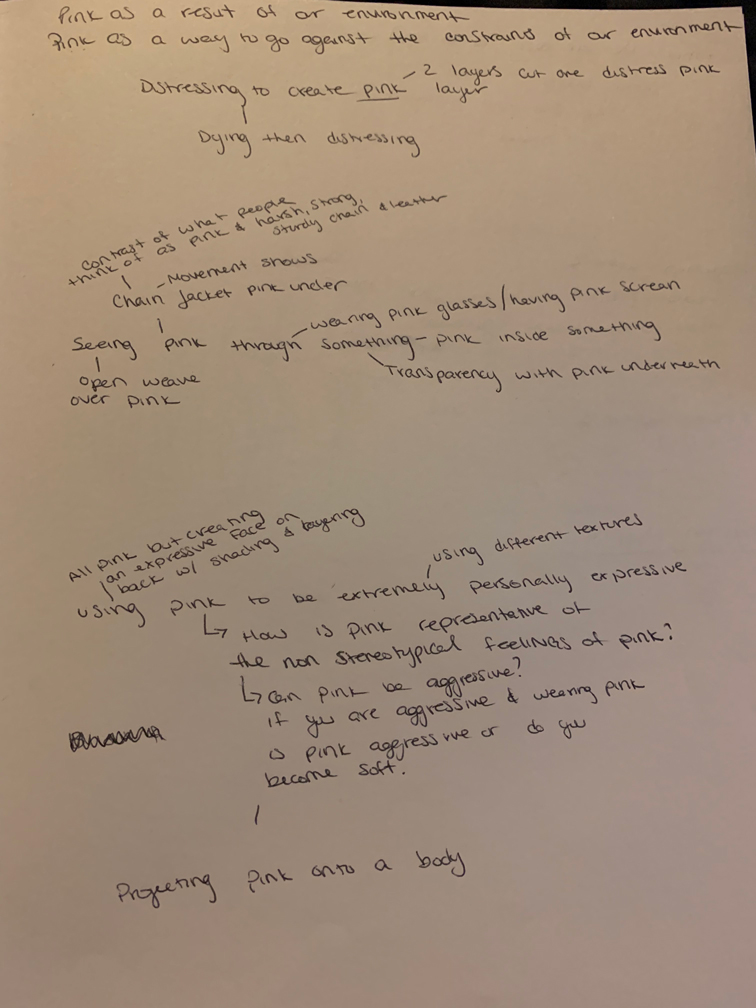 Pink as a result of or environment
Pink as a way to go against the constrains of our environment
Distressing to create pink layer
2 layers cut one distress pink
Dying then distressing
contrast of what people
think of as pink & harsh, strong,
sturdy chain & leather
Chain Jacket pink under
Movement shows
wearing pink glasses/having pink screan
Seeing pink through something - pink inside something
Transparency with pink underneath
open weave
over pink
All pink but creating
an expressive face on
back w/ shading & layering
using different textures
using pink to be extremely personally expressive
How is pink representative of
the non stereotypical feelings of pink?
can pink be aggressive?
if you are aggressive & wearing pink
is pink aggressive or do you
become soft.
Projecting pink onto a body